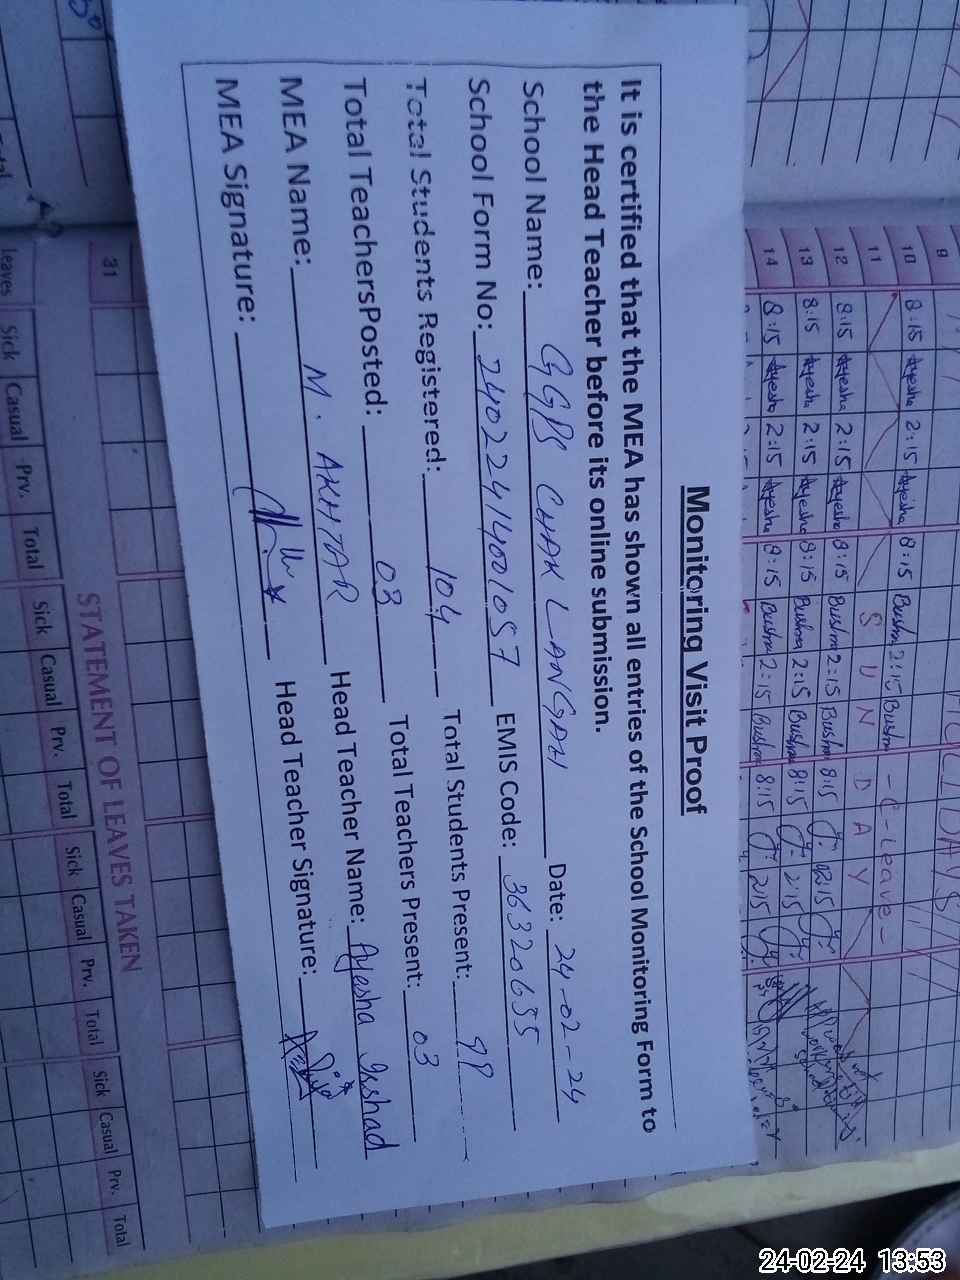 Monitoring Visit Proof
It is certified that the MEA has shown all entries of the School Monitoring Form to
the Head Teacher before its online submission.
School Name: GGPS CHAK LANGAH Date: 24-02-24
School Form No: 24022414001057 EMIS Code: 36320655
Total Students Registered: 104 Total Students Present: 99
Total TeachersPosted: 03 Total Teachers Present: 03
MEA Name: M. AKHTAR Head Teacher Name: Ayesha Irshad
MEA Signature: Head Teacher Signature:
9 HOLIDAYS
10 8:15 Ayesha 2:15 Ayesha 8:15 Bushra 2:15 Bushra - C - Leave -
11 S U N D A Y
12 8:15 Ayesha 2:15 Ayesha 8:15 Bushra 2:15 Bushra 8:15 02:15
13 8:15 Ayesha 2:15 Ayesha 8:15 Bushra 2:15 Bushra 8:15 2:15
14 8:15 Ayesha 2:15 Ayesha 8:15 Bushra 2:15 Bushra 8:15 2:15
31
STATEMENT OF LEAVES TAKEN
leaves Sick Casual Prv. Total Sick Casual Prv. Total Sick Casual Prv. Total Sick Casual Prv. Total
24-02-24 13:53